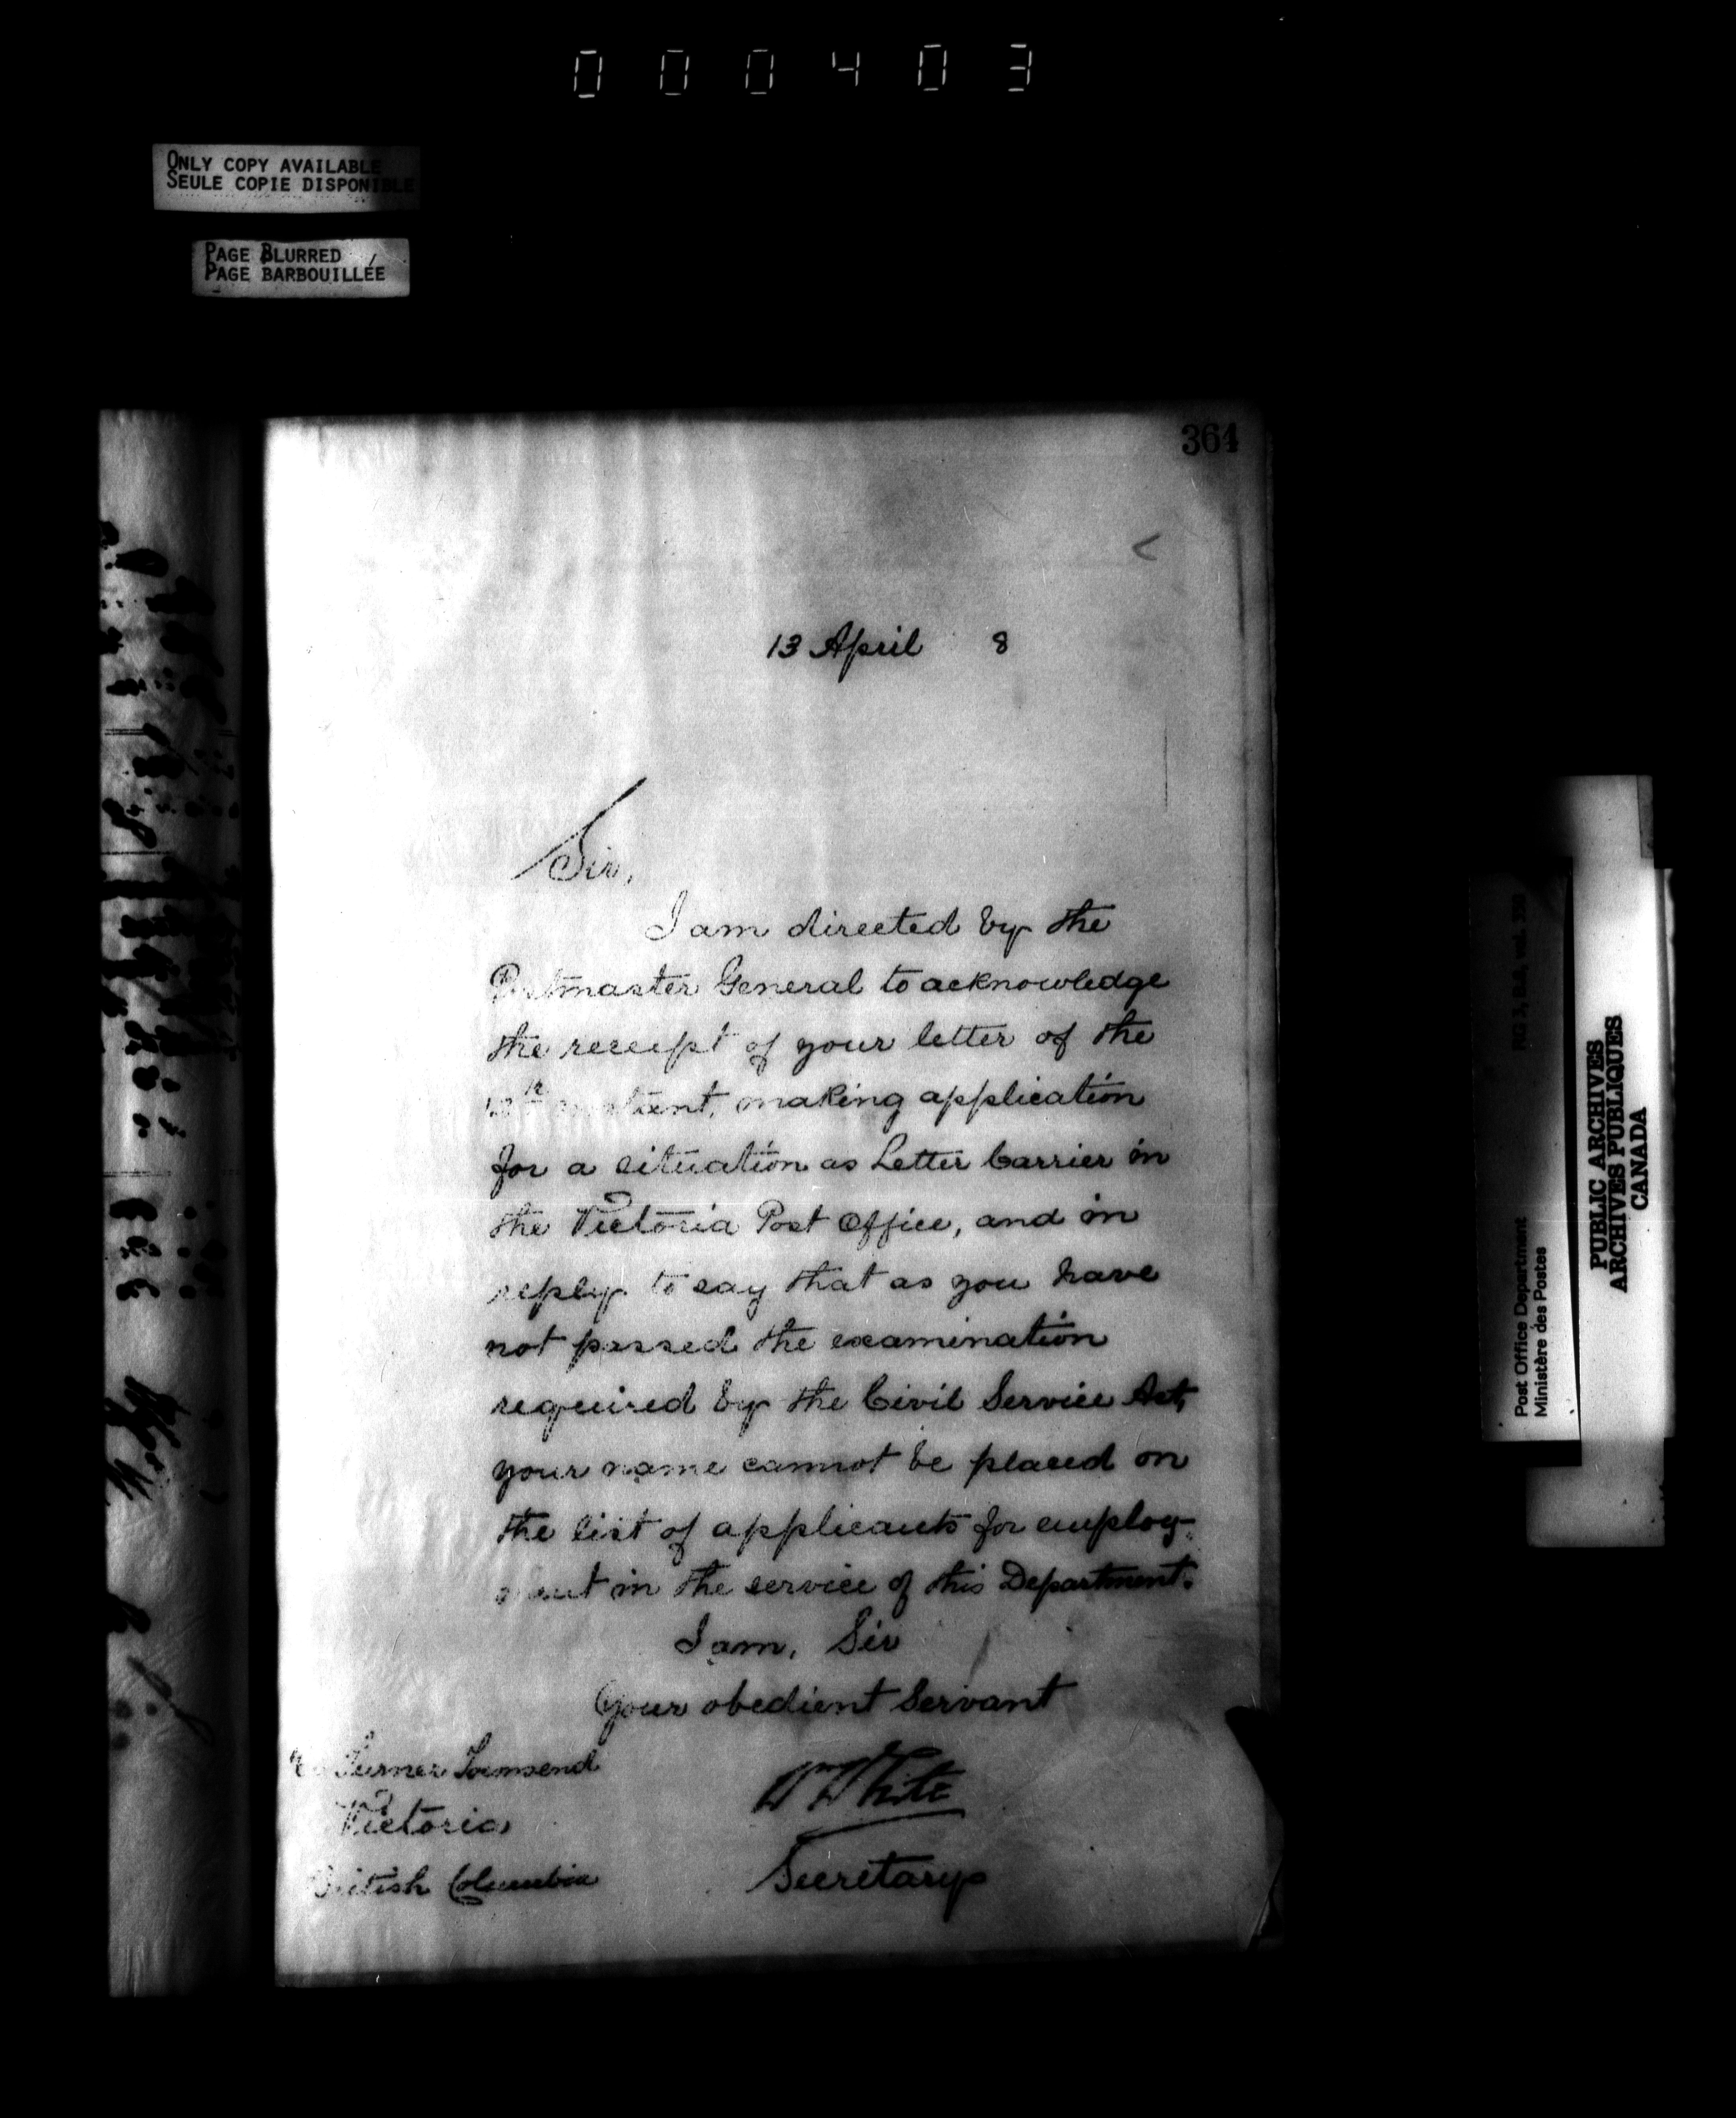 000403
ONLY COPY AVAILABLE
SEULE COPIE DISPONIBLE
PAGE BLURRED
PAGE BARBOUILLÉE
364
13 April 8
Sir,
I am directed by the
Postmaster General to acknowledge
the receipt of your letter of the
instant, making application
for a situation as Letter Carrier in
the Victoria Post Office, and in
reply to say that as you have
not passed the examination
required by the Civil Service Act,
your name cannot be placed on
the list of applicants for employ-
ment in the service of this Department.
I am, Sir
Your obedient Servant
Turner Townsend
Victoria
British Columbia
W White
Secretary
Post Office Department
Ministère des Postes
PUBLIC ARCHIVES
ARCHIVES PUBLIQUES
CANADA